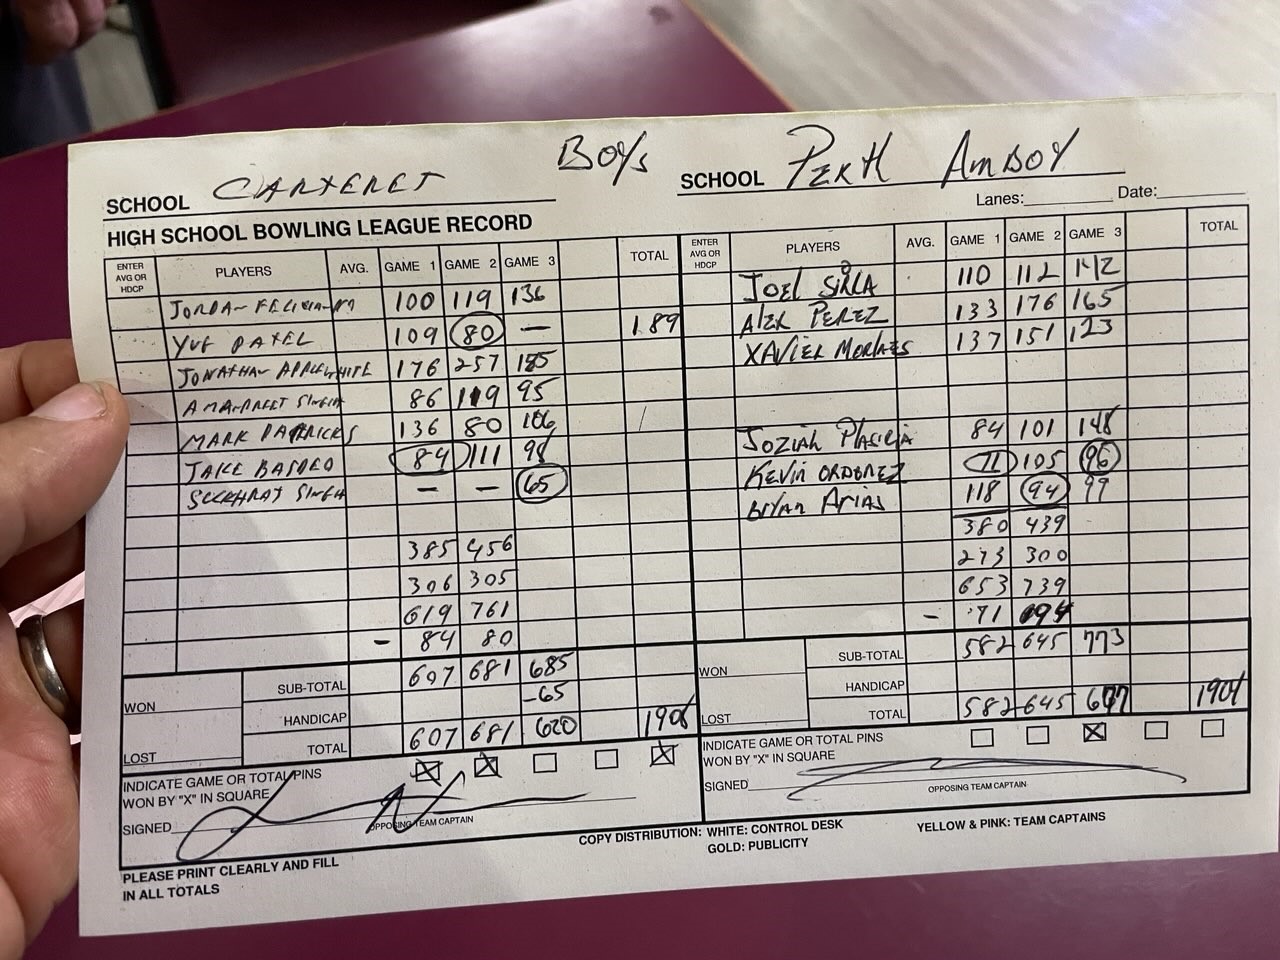 Boys
SCHOOL CARTERET SCHOOL PERTH AMBOY
HIGH SCHOOL BOWLING LEAGUE RECORD Lanes: Date:
ENTER AVG OR HDCP PLAYERS AVG. GAME 1 GAME 2 GAME 3 TOTAL ENTER AVG OR HDCP PLAYERS AVG. GAME 1 GAME 2 GAME 3 TOTAL
JORDAN FELICIANO 100 119 136 JOEL 110 112 142
YUG PATEL 109 80 — 189 ALEX PEREZ 133 176 165
JONATHAN APPLEWHITE 176 257 185 XAVIER MORALES 137 151 123
AMANPREET SINGH 86 119 95
MARK PATRICKS 136 80 106 JOZIAH 84 101 148
JAKE 84 111 98 KEVIN ORDONEZ 71 105 96
SUKHRAJ SINGH — — 65 BRYAN ARIAS 118 94 99
380 439
385 456 273 300
306 305 653 739
619 761 - 71 94
- 84 80
WON SUB-TOTAL 607 681 685 WON SUB-TOTAL 582 645 773
LOST HANDICAP -65 LOST HANDICAP
TOTAL 607 681 620 1908 TOTAL 582 645 677 1904
INDICATE GAME OR TOTAL PINS INDICATE GAME OR TOTAL PINS
WON BY "X" IN SQUARE WON BY "X" IN SQUARE
SIGNED SIGNED
OPPOSING TEAM CAPTAIN OPPOSING TEAM CAPTAIN
PLEASE PRINT CLEARLY AND FILL COPY DISTRIBUTION: WHITE: CONTROL DESK YELLOW & PINK: TEAM CAPTAINS
IN ALL TOTALS GOLD: PUBLICITY